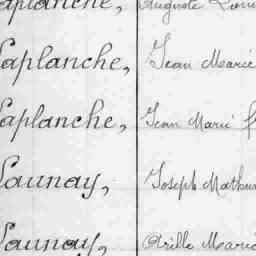 Laplanche, Auguste
Laplanche, Jean Marie
Laplanche, Jean Marie
Launay, Joseph Mathur
Launay, Marie